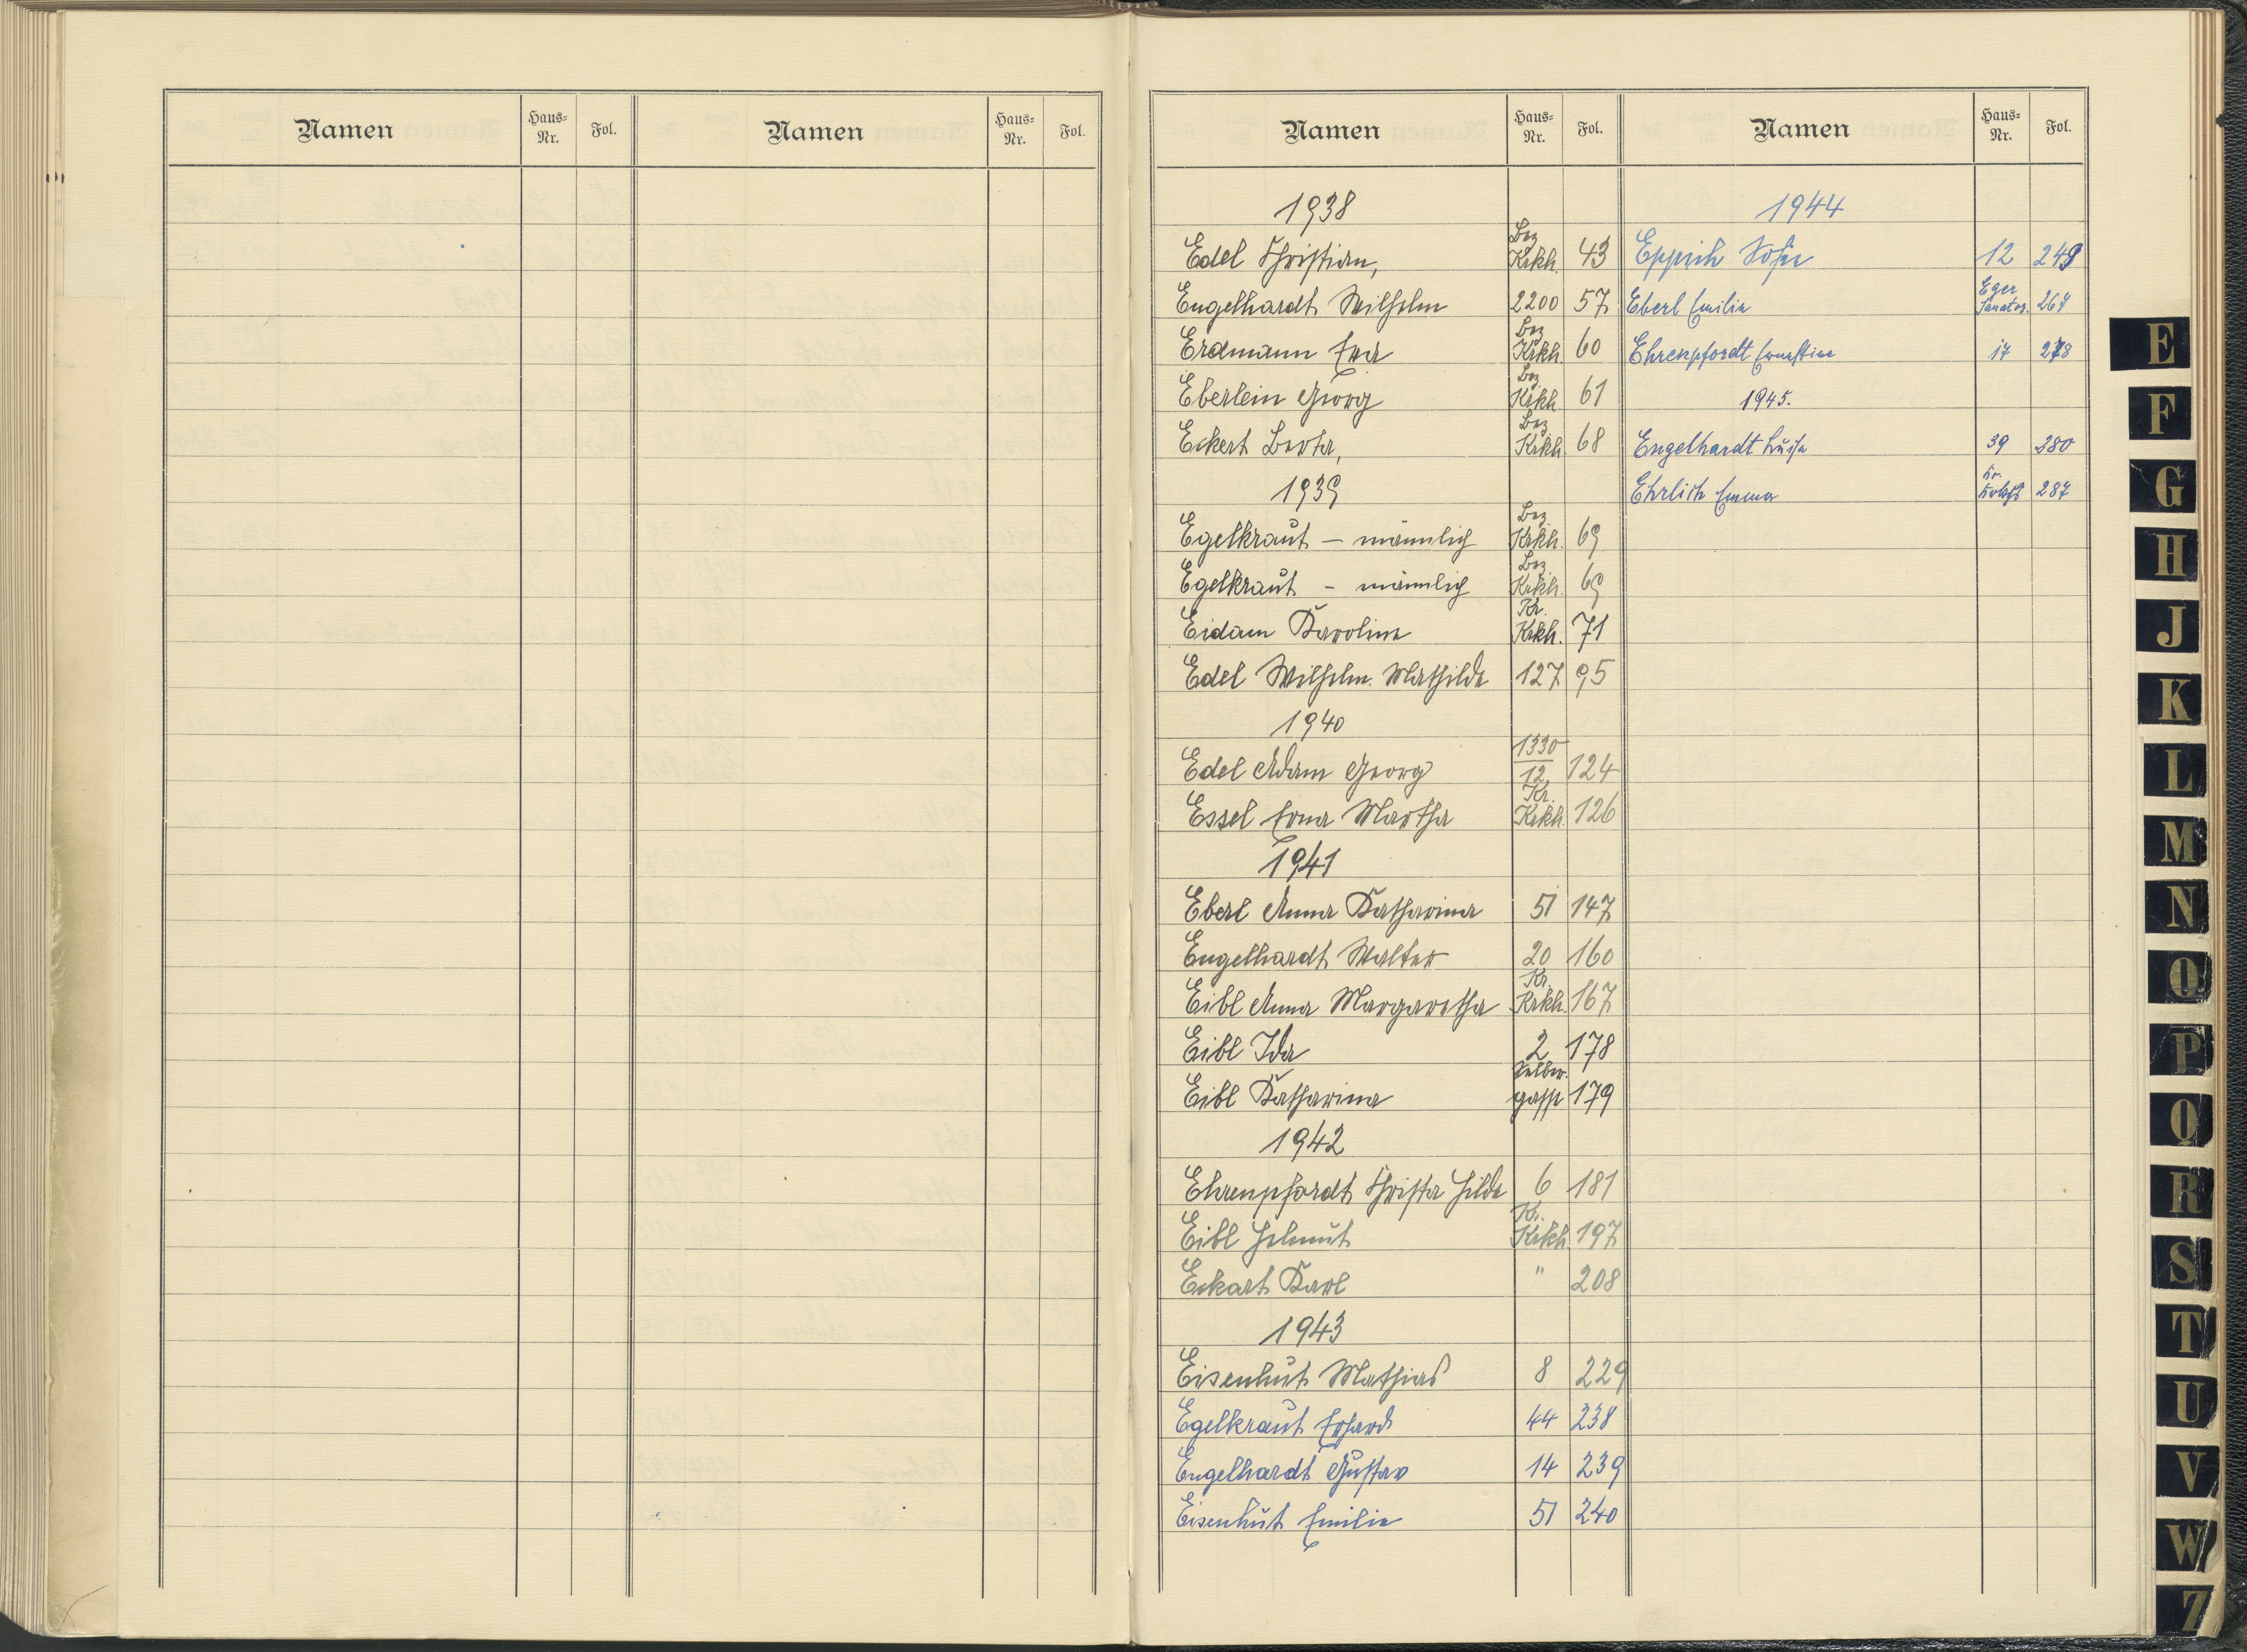 Namen Haus-Nr. Fol. Namen Haus-Nr. Fol.
Namen Haus-Nr. Fol. Namen Haus-Nr. Fol.
1938
Edel Christian, Bez. Krkh. 43
Engelhardt Wilhelm 2200 57
Erdmann Eva Bez. Krkh. 60
Eberlein Georg Bez. Krkh. 61
Eckert Berta, Bez. Krkh. 68
1939
Egelkraut – männlich Bez. Krkh. 69
Egelkraut – männlich Bez. Krkh. 69
Eidam Karoline Kr. Krkh. 71
Edel Wilhelm. Mathilde 127 95
1940
Edel Adam Georg 1330/12 124
Essel Erna Martha Kr. Krkh. 126
1941
Eberl Anna Katharina 51 147
Engelhardt Walter 20 160
Eibl Anna Margaretha Kr. Krkh. 167
Eibl Ida 2 178
Eibl Katharina gasse 179
1942
Ehrenpfordt Christa Hilde 6 181
Eibl Helmut Kr. Krkh. 197
Eckart Karl " 208
1943
Eisenhut Mathias 8 229
Egelkraut Erhard 44 238
Engelhardt Gustav 14 239
Eisenhut Emilie 51 240
1944
Epprich Sofie 12 249
Eberl Emilie Eger Sanator. 267
Ehrenpfordt Ernestine 17 278
1945.
Engelhardt Luise 39 280
Ehrlich Emma 287
E
F
G
H
J
K
L
M
N
O
P
Q
R
S
T
U
V
W
Z